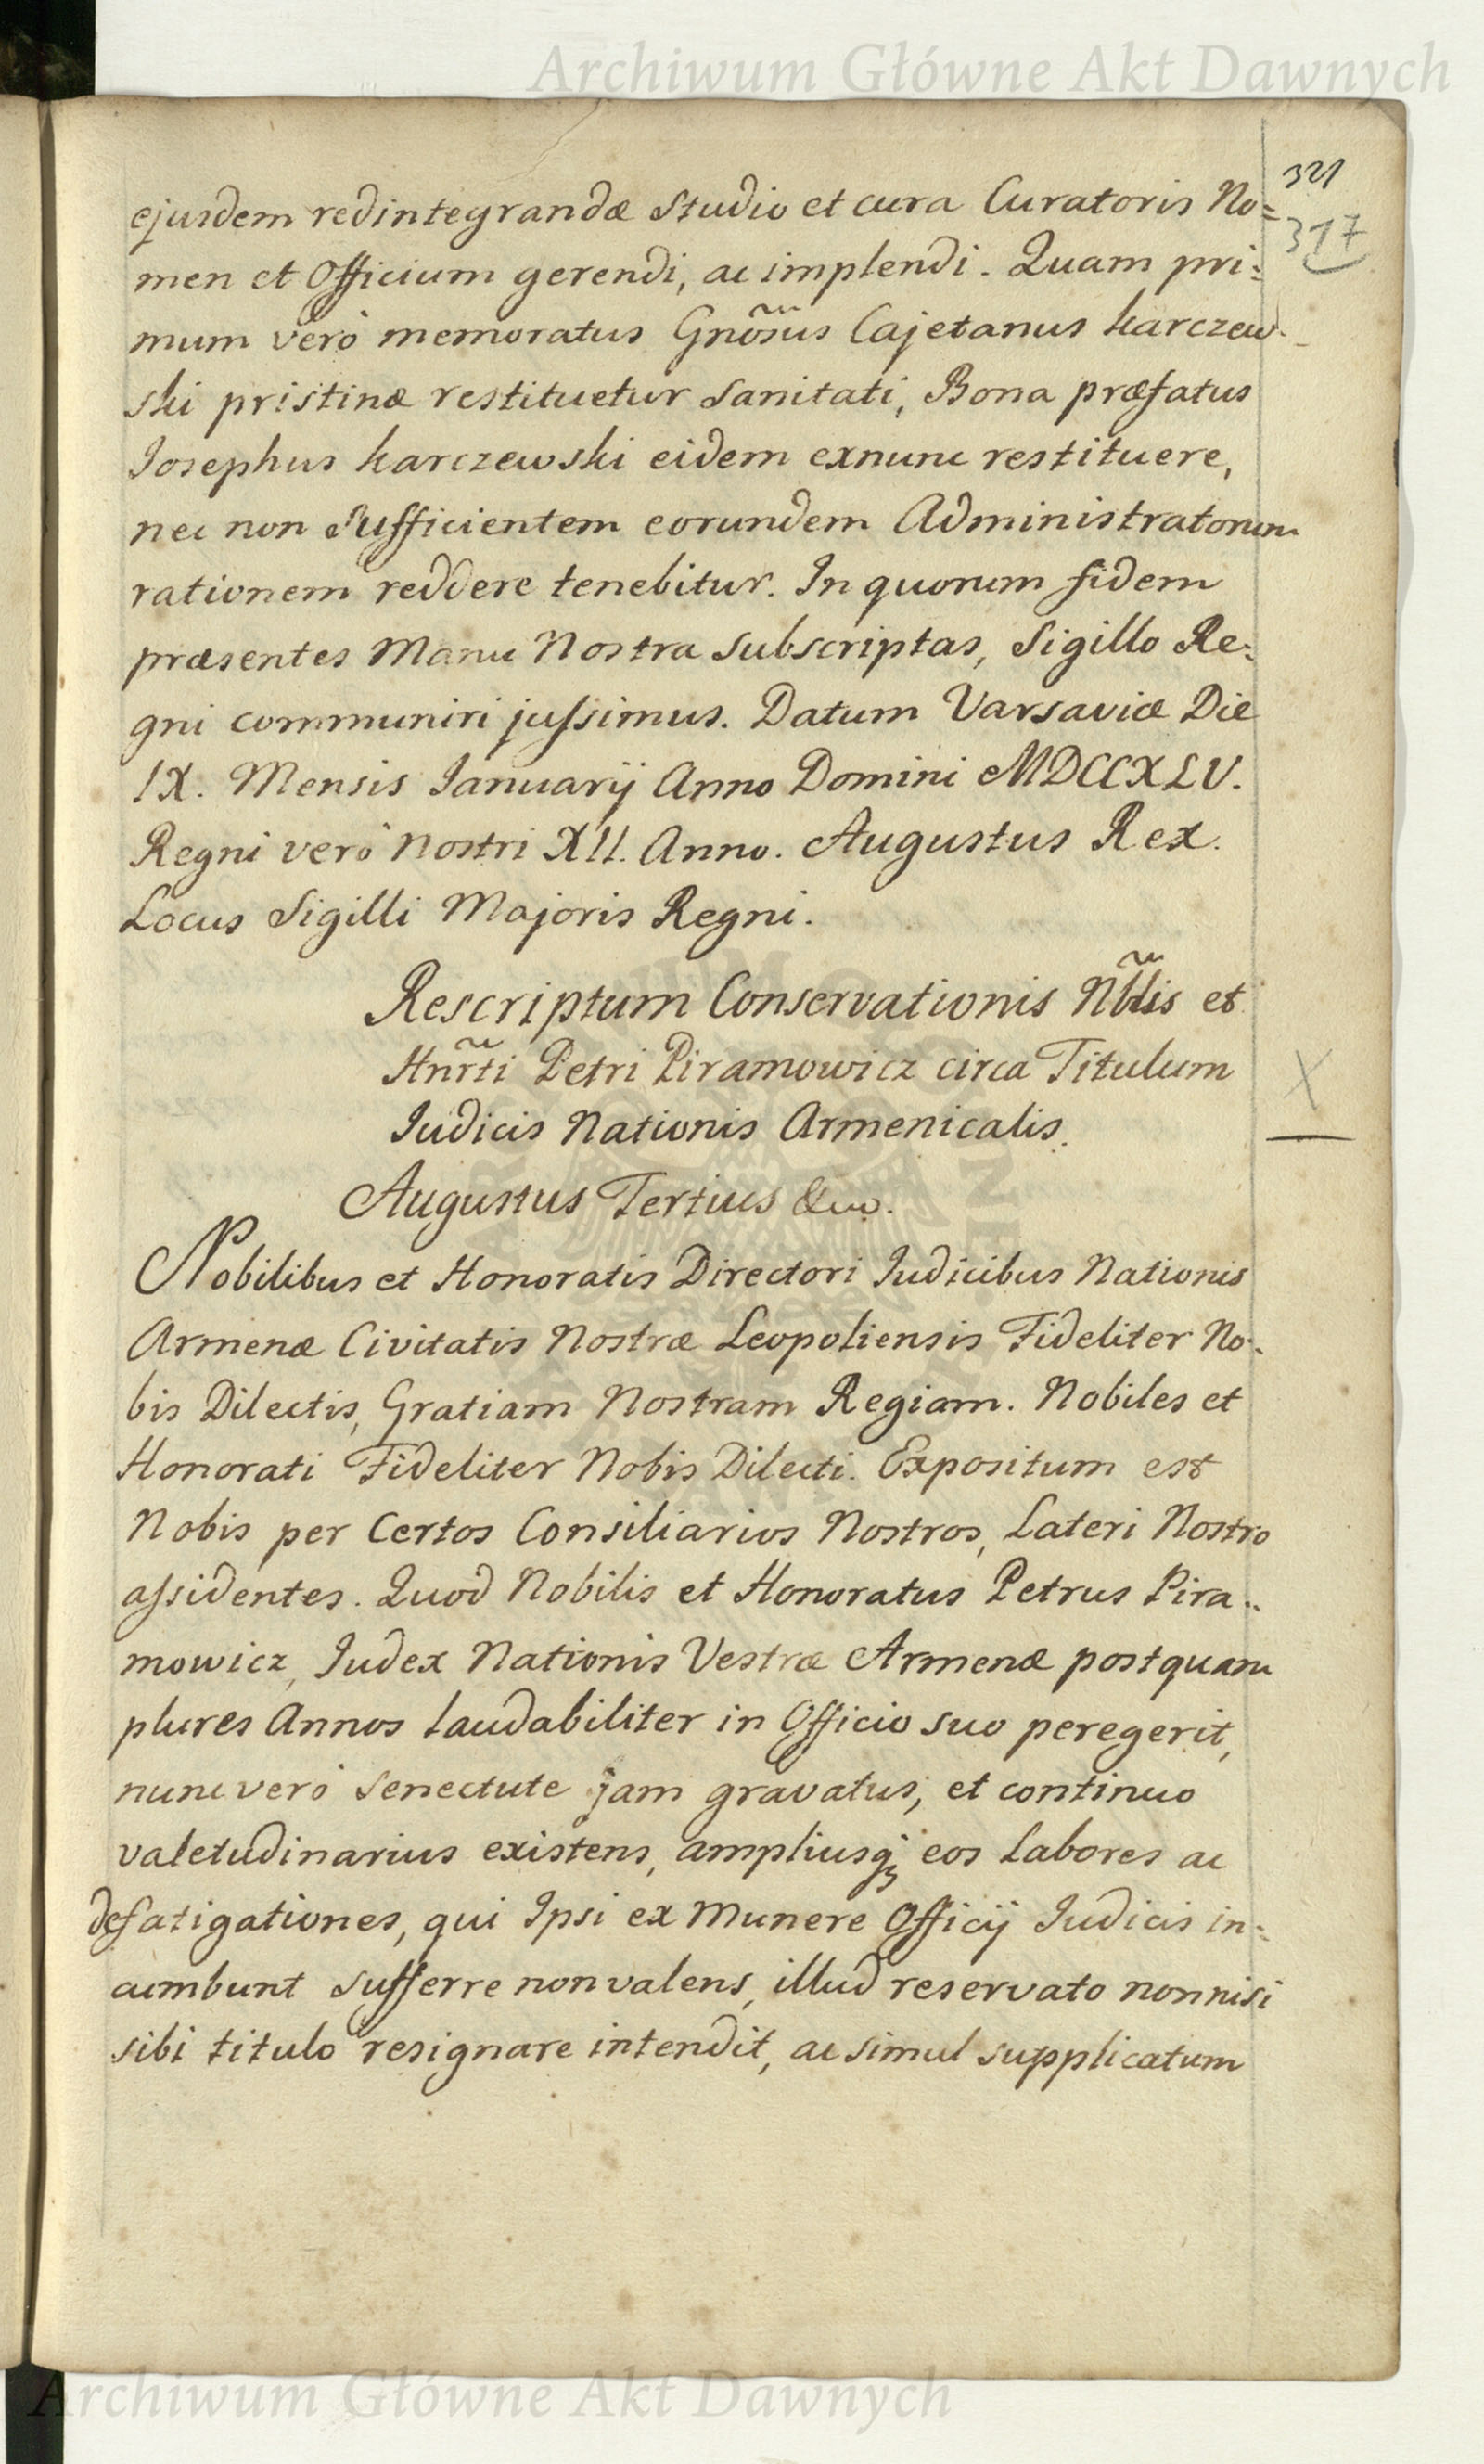 Archiwum Główne Akt Dawnych
321
317
ejusdem redintegrandæ Studio et cura Curatoris No=
men et Officium gerendi, ac implendi. Quam pri=
mum verò memoratus Gnõsus Cajetanus Karczew-
ski pristinæ restituetur Sanitati, Bona præfatus
Josephus Karczewski eidem exnunc restituere,
nec non Sufficientem eorundem Administratorum
rationem reddere tenebitur. In quorum fidem
præsentes Manu Nostra Subscriptas, Sigillo Re=
gni communiri juſsimus. Datum Varsaviæ Die
IX. Mensis Januarij Anno Domini MDCCXLV.
Regni verò Nostri XII. Anno. Augustus Rex.
Locus Sigilli Majoris Regni.
Rescriptum Conservationis Nb̃lis et
Hnr̃ti Petri Piramowicz circa Titulum
Judicis Nationis Armenicalis.
X
Augustus Tertius &c.
Nobilibus et Honoratis Directori Judicibus Nationis
Armenæ Civitatis Nostræ Leopoliensis Fideliter No=
bis Dilectis, Gratiam Nostram Regiam. Nobiles et
Honorati Fideliter Nobis Dilecti. Expositum est
Nobis per Certos Consiliarios Nostros, Lateri Nostro
aſsidentes. Quod Nobilis et Honoratus Petrus Pira=
mowicz, Judex Nationis Vestræ Armenæ postquam
plures Annos laudabiliter in Officio suo peregerit,
nunc verò Senectute jam gravatus, et continuo
valetudinarius existens, ampliusq; eos Labores ac
defatigationes, qui Ipsi ex Munere Officij Judicis in=
cumbunt Sufferre non valens, illud reservato nonnisi
sibi titulo resignare intendit, ac simul supplicatum
Archiwum Główne Akt Dawnych